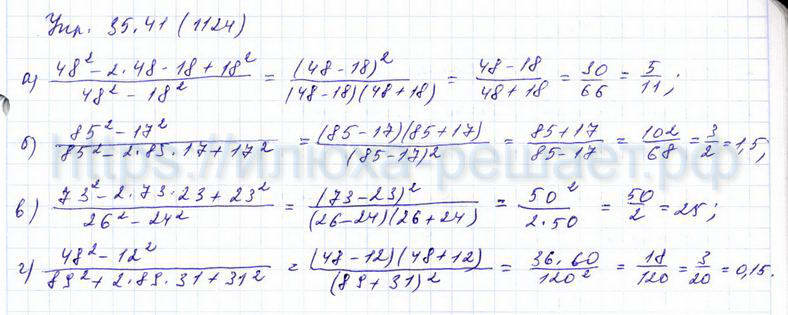 Упр. 35.41 (1124)
а) (48² - 2·48·18 + 18²)/(48² - 18²) = (48-18)²/((48-18)(48+18)) = (48-18)/(48+18) = 30/66 = 5/11;
б) (85² - 17²)/(85² - 2·85·17 + 17²) = ((85-17)(85+17))/(85-17)² = (85+17)/(85-17) = 102/68 = 3/2 = 1,5;
в) (73² - 2·73·23 + 23²)/(26² - 24²) = (73-23)²/((26-24)(26+24)) = 50²/(2·50) = 50/2 = 25;
г) (48² - 12²)/(89² + 2·89·31 + 31²) = ((48-12)(48+12))/(89+31)² = (36·60)/120² = 18/120 = 3/20 = 0,15.
https://илюха-решает.рф